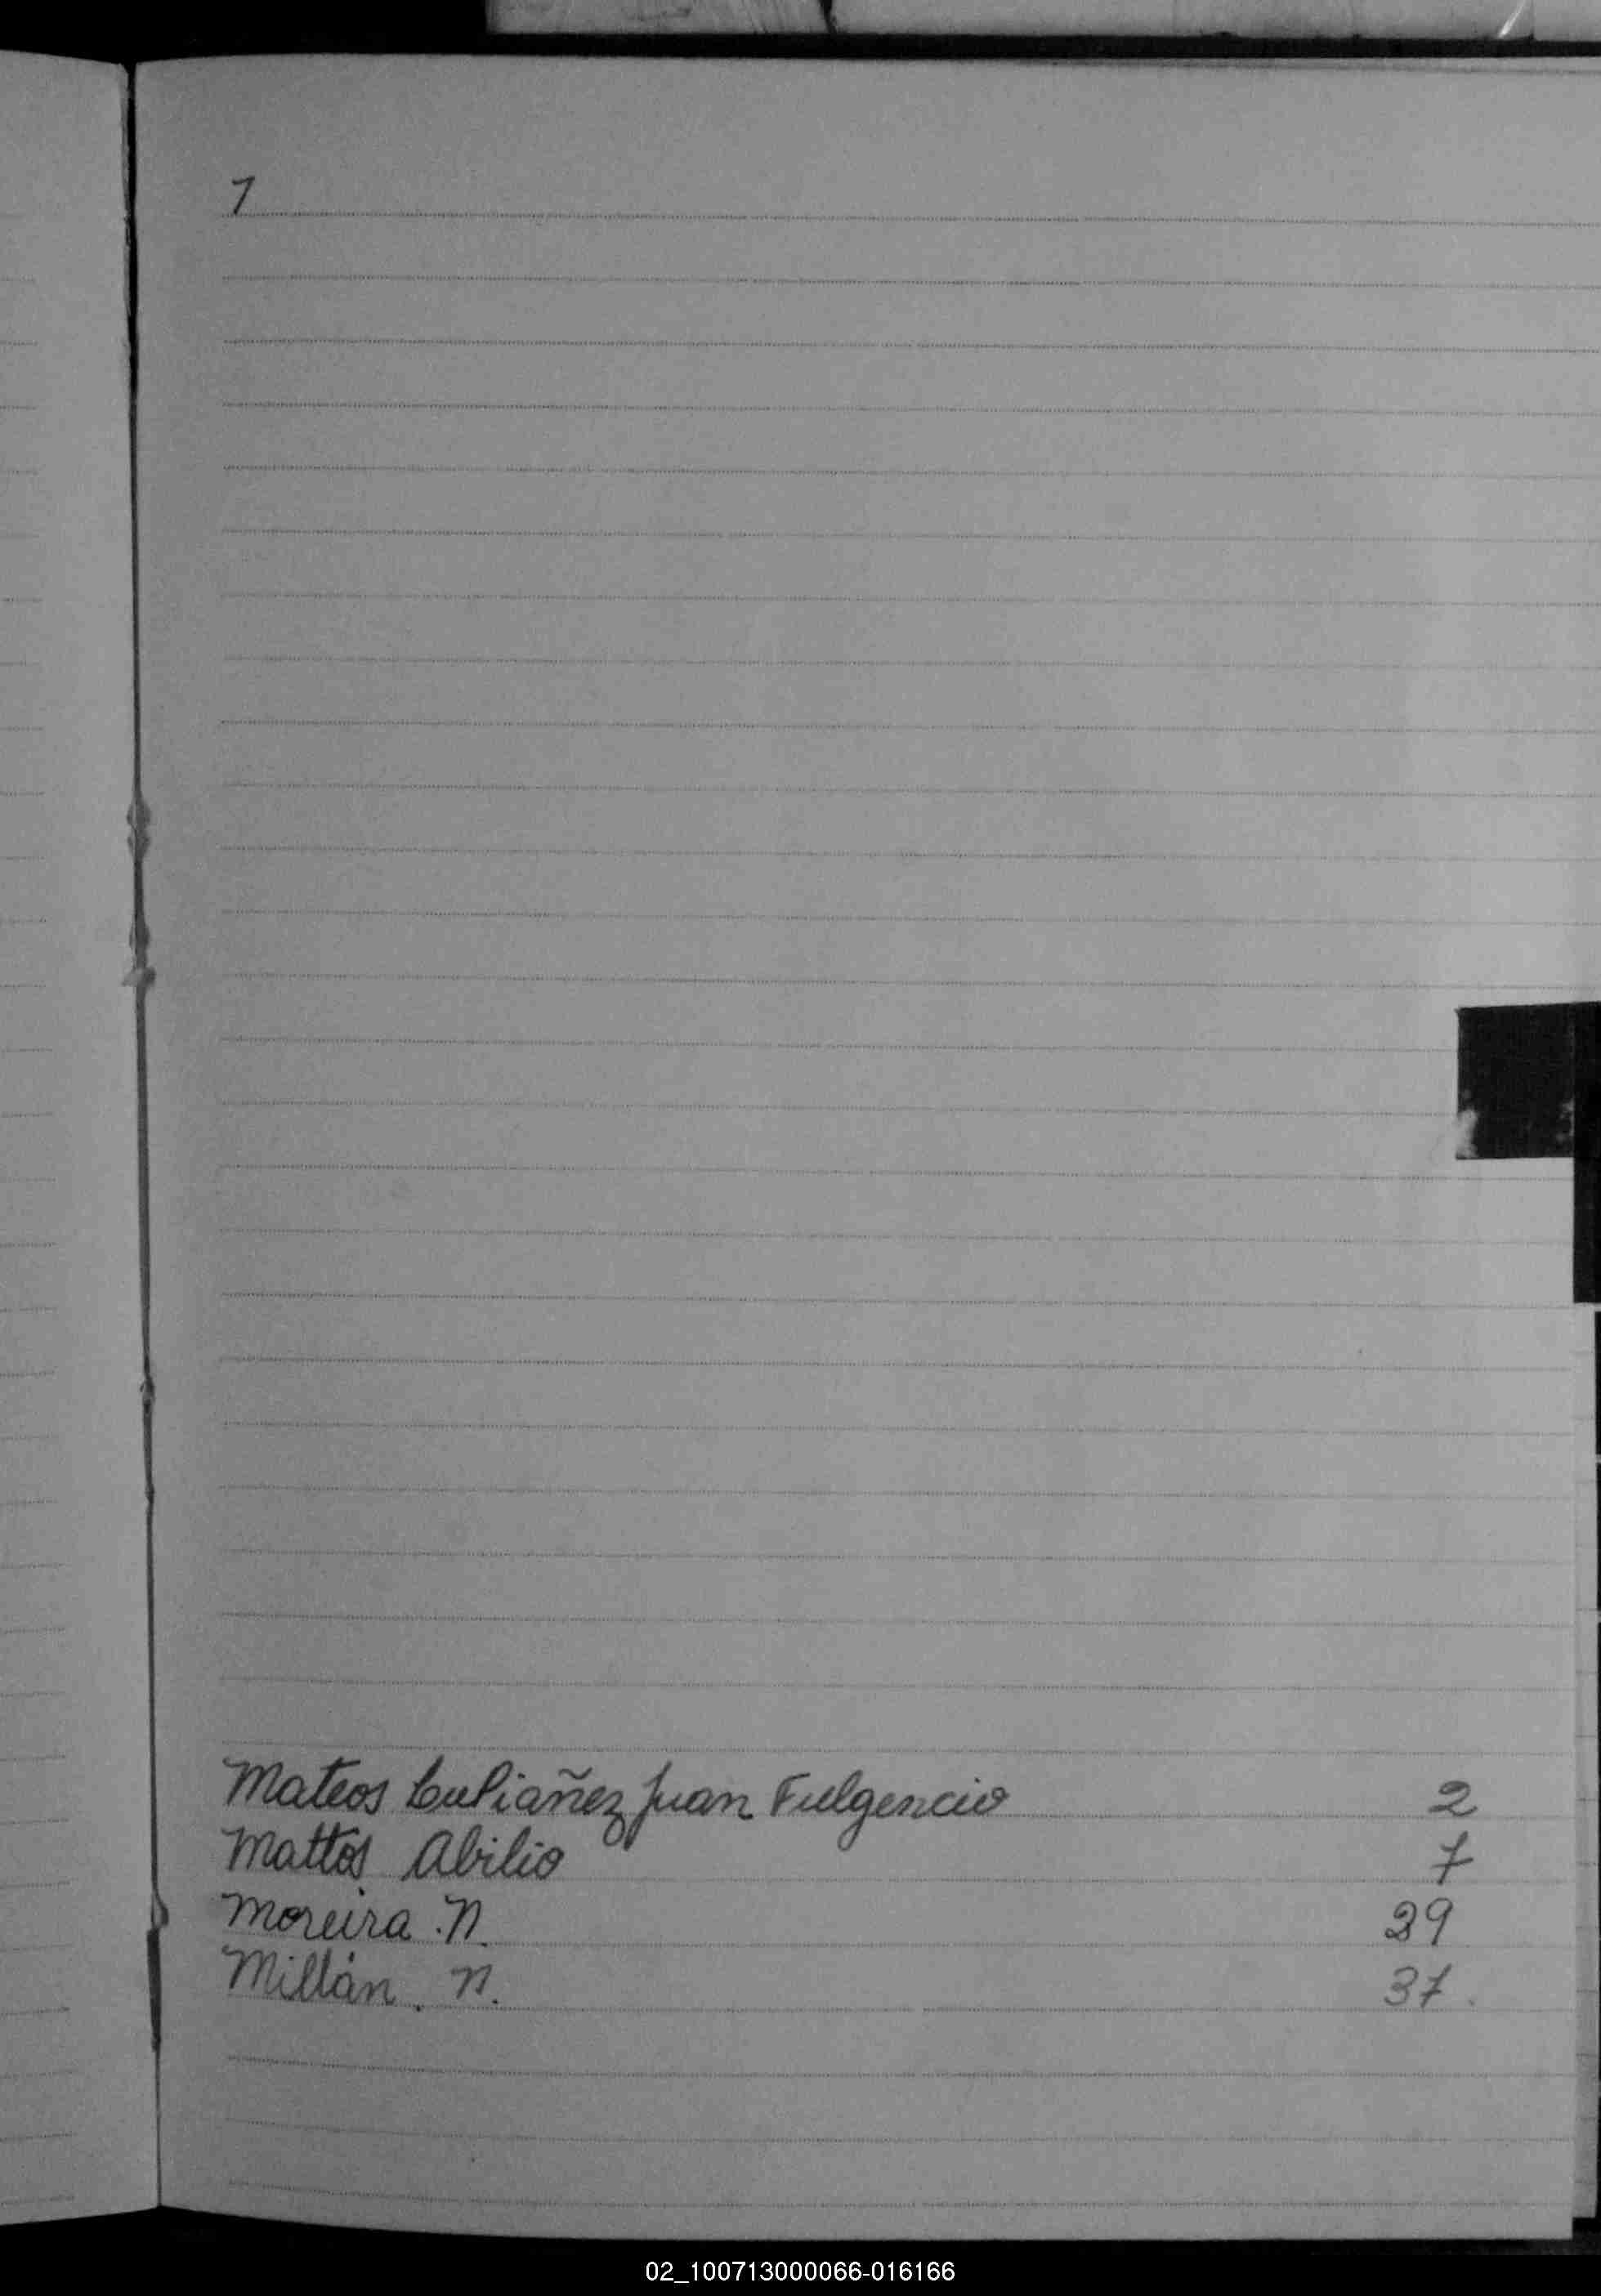 1
Mateos Cupiañez Juan Fulgencio 2
Mattos Abilio 7
Moreira . N. 29
Millán . N. 37.
02_100713000066-016166